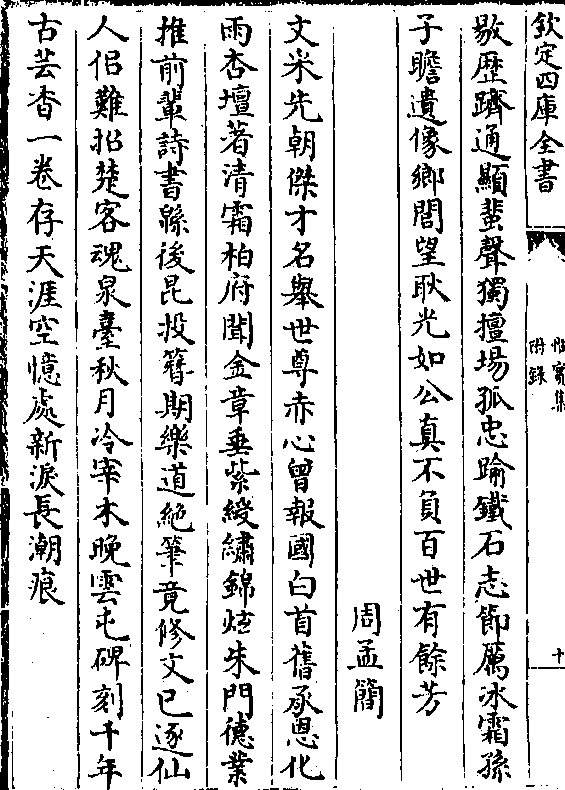 欽定四庫全書
附錄
十
敭歴躋通顯蜚聲獨擅場孤忠踰鐵石志節厲冰霜孫
子瞻遺像鄉閭望耿光如公真不負百世有餘芳
周孟簡
文米先朝傑才名舉世尊赤心曾報國白首舊承恩化
雨杏壇著清霜柏府聞金章垂紫綬繡錦炫朱門德業
推前輩詩書繇後昆投簪期樂道絶筆竟修文已逐仙
人侣難招楚客魂泉臺秋月冷宰木晚雲屯碑刻千年
古芸杳一卷存天涯空憶處新淚長潮痕